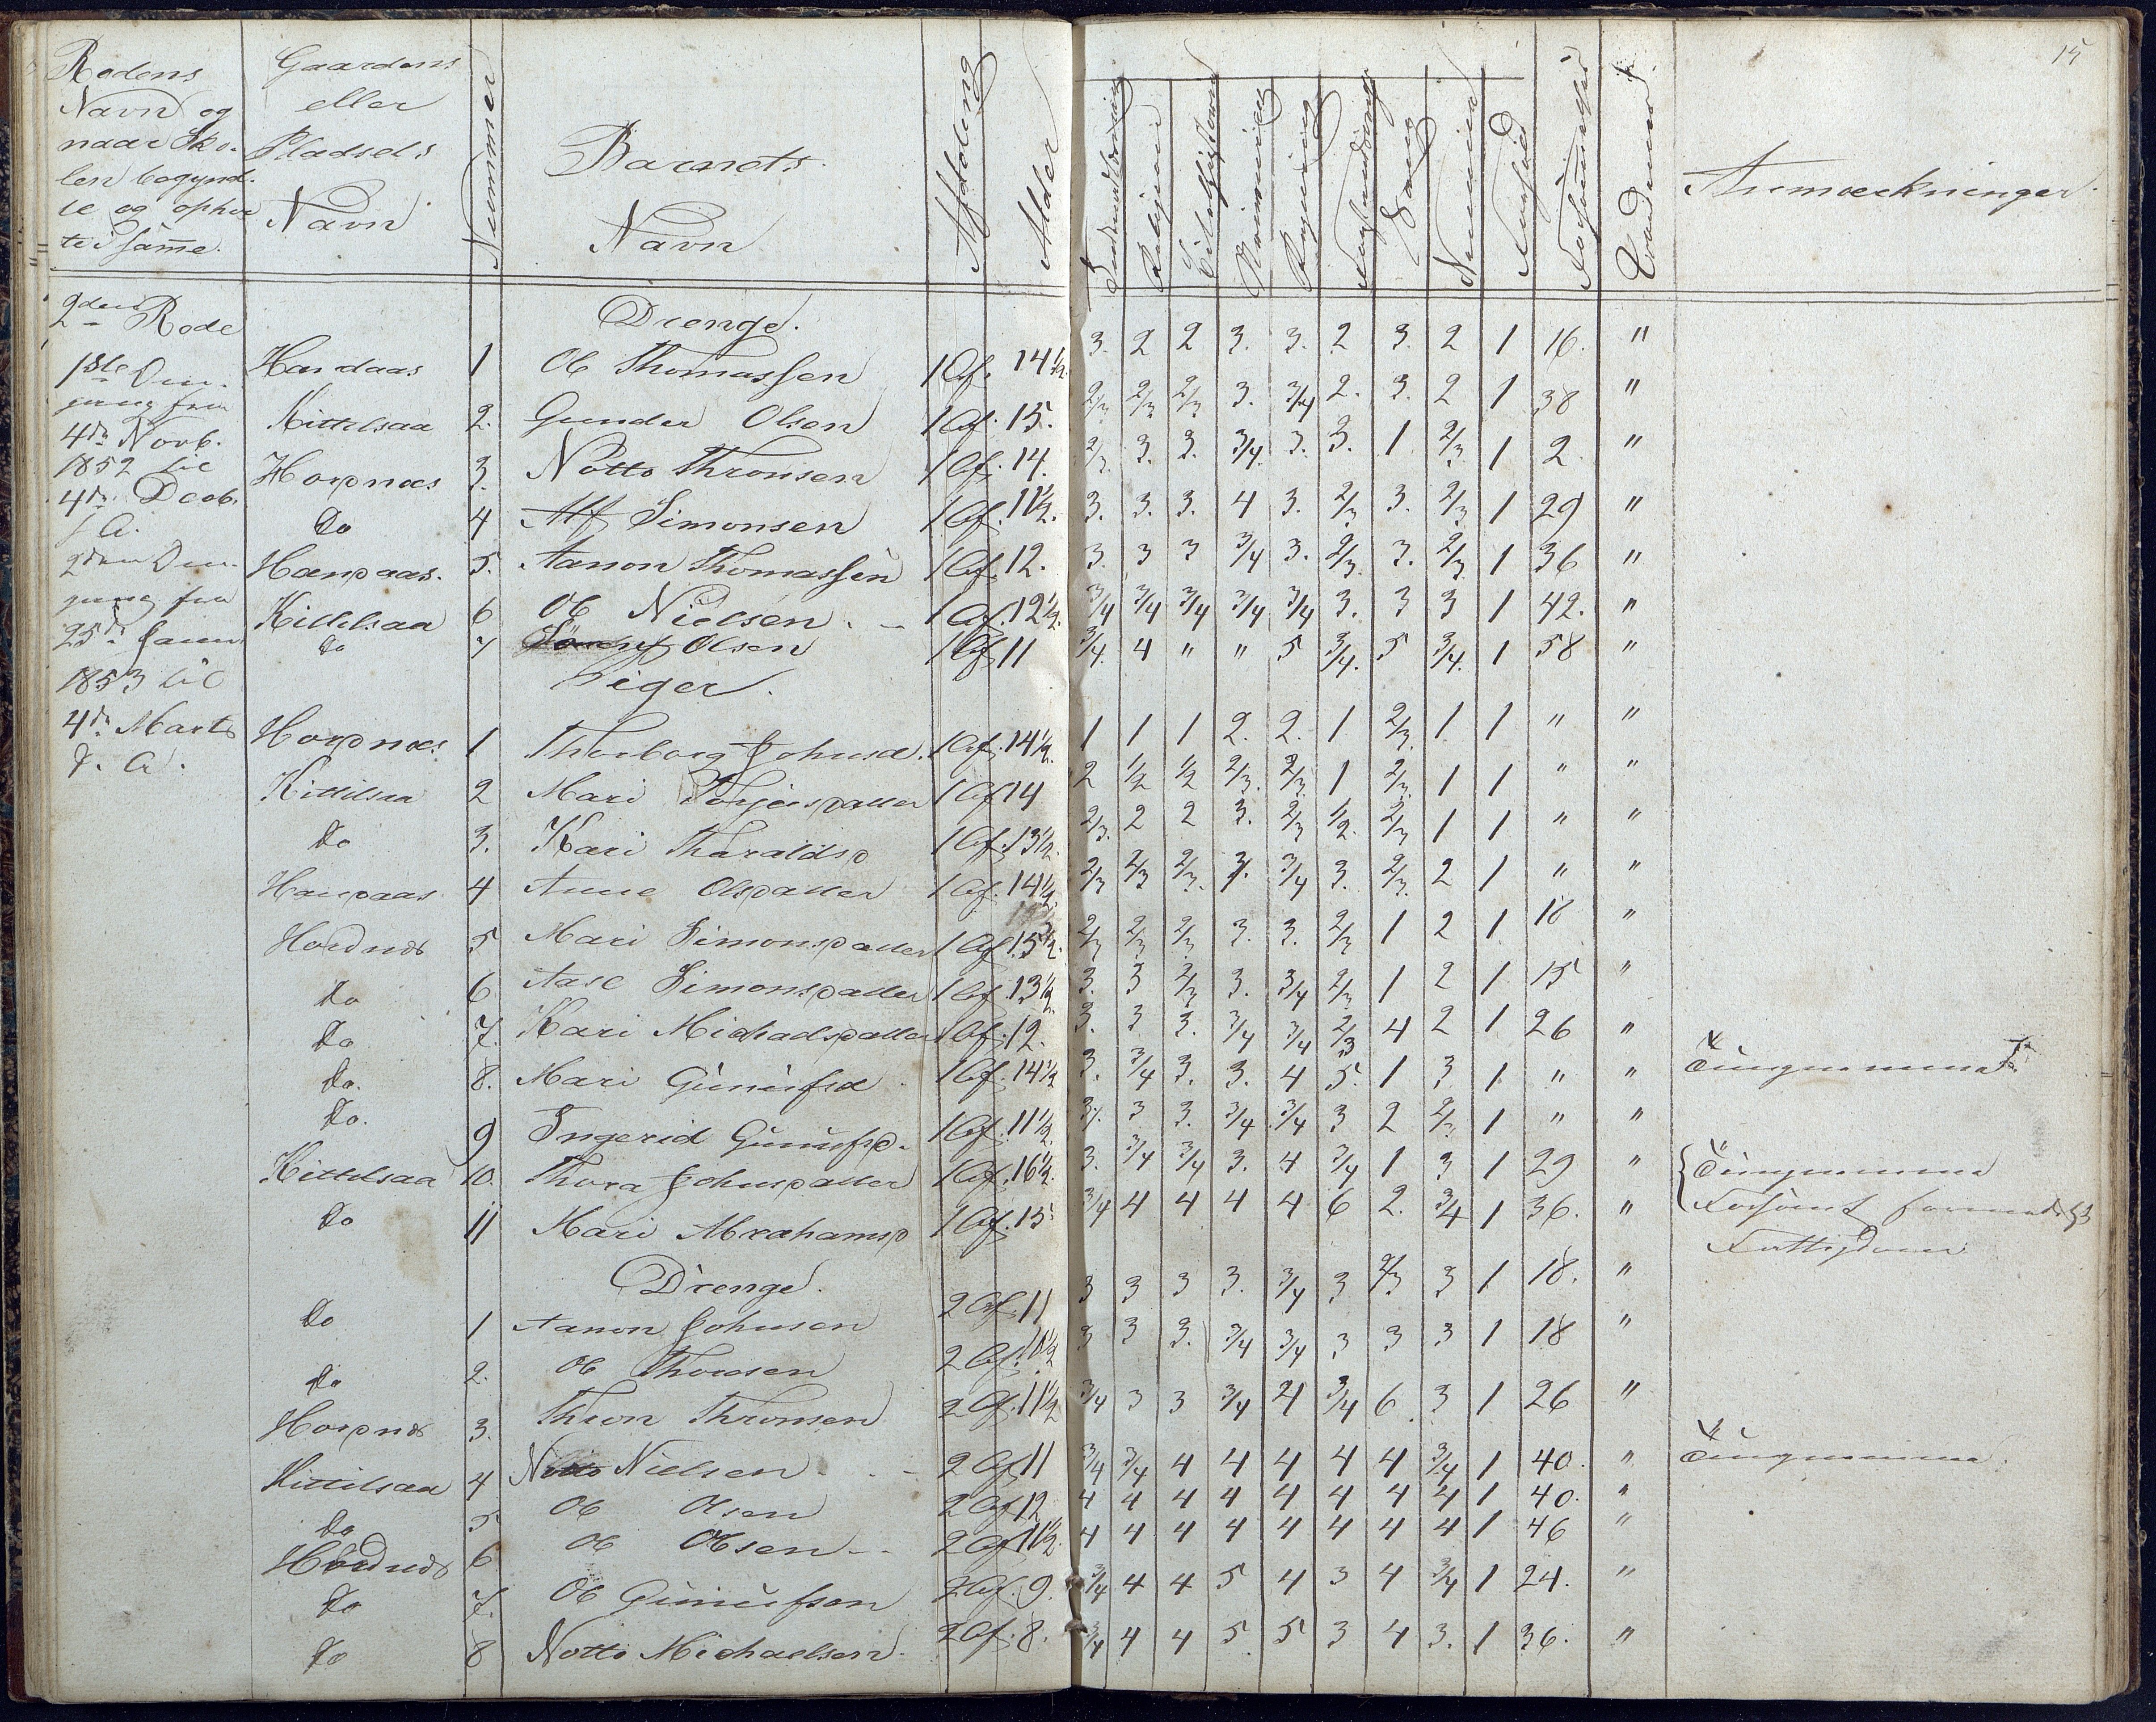 15
Rodens Navn og naar Skolen begyndte og ophørte i samme.
Gaardens eller Pladsets Navn
Nummer
Barnets Navn
Afdeling
Alder
Religion
Skrivning
Regning
Sang
Anmærkninger
2den Rode
1ste Om-
gang fra
4de Novb.
1852 til
4de Decb.
s. A.
2den Om-
gang fra
25de Janu
1853 til
4de Marts
s. A.
Drenge.
1 Ole Thomassen 1 Af. 14 1/2. 3. 2 2 3. 3. 2 3. 2 1 16. "
Kittelsaa 2. Gunder Olsen 1 Af. 15. 2/3 2/3 2/3 3. 3/4 2. 3. 2 1 38 "
Hordnæs 3. Notto Thronsen 1 Af. 14. 2/3. 3. 3. 3/4. 3. 3. 1 2/3. 1 2 "
Do 4 Alf Simonsen 1 Af. 11 1/2. 3. 3. 3. 4 3. 2/3 3. 2/3 1 29 "
5. Aanon Thomassen 1 Af. 12. 3. 3 3 3/4 3. 2/3. 3. 2/3 1 36 "
Kittelsaa 6 Ole Nielsen. 1 Af. 12 1/2. 3/4 3/4 3/4 3/4 3/4 3. 3 3 1 42. "
Do 7 Olsen 1 Af 11 3/4. 4 " " 5 3/4. 5 3/4. 1 58 "
Piger.
Hordnæs 1 Thorborg Johnsd. 1 Af. 14 1/2. 1 1 1 2. 2. 1 2/3. 1 1 " "
Kittelsaa 2 Mari Torjersdatter 1 Af 14 2 1/2 1/2 2/3. 2/3. 1 2/3. 1 1 " "
Do 3. Kari Tharaldsd 1 Af. 13 1/2. 2/3. 2 2 3. 2/3 1/2. 2/3 1 1 " "
4 Anne Olsdatter 1 Af. 14 1/2. 2/3 2/3 2/3. 3. 3/4 3. 2/3. 2 1 " "
Hordnæs 5 Mari Simonsdatter 1 Af 15 1/2. 2/3 2/3 2/3 3. 3. 2/3 1 2 1 18 "
Do 6 Aase Simonsdatter 1 Af. 13 1/2. 3. 3 2/3 3. 3/4 2/3 1 2 1 15 "
Do 7. Kari Michaelsdatter 1 Af. 12. 3. 3 3. 3/4 3/4 2/3 4 2 1 26 "
Do. 8. Mari Gunnufsd 1 Af. 14 1/2 3. 3/4 3. 3. 4 5. 1 3 1 " "
Do. 9 Ingerid Gunnufsd. 1 Af. 11 1/2. 3. 3 3. 3/4 3/4 3 2 2/3. 1 " "
Kittelsaa 10. Thora Johnsdatter 1 Af. 16 1/2. 3. 3/4 3/4 3. 4 3/4 1 3 1 29 " Tungnemme
Do 11 Mari Abrahamsd 1 Af. 15 3/4 4 4 4 4 6 2. 3/4 1 36. " Forsømt formedelst
Fattigdom
Drenge.
Do 1 Aanon Johnsen 2 Af. 11 3 3 3 3. 3/4 3 2/3 3 1 18. "
Do 2. Ole Thorsen 2 Af. 3 3 3. 3/4 3/4 3 3 3 1 18 "
Hordnæs 3. Thron Thronsen 2 Af. 11 1/2 3/4 3 3 3/4 4 3/4 6 3 1 26 "
Kittelsaa 4 Notto Nielsen 2 Af 11 3/4 3/4 4 4 4 4 4 3/4 1 40. " Tungnemme.
Do 5 Ole Olsen 2 Af 12 4 4 4 4 4 4 4 4 1 40. "
Hordnæs 6 Ole Olsen 2 Af 11 1/2. 4 4 4 4 4 4 4 4 1 46 "
Do 7. Ole Gunnufsen 2 Af. 9. 3/4 4 4 5 4 3 4 3/4 1 24. "
Do 8 Notto Michaelsen 2 Af. 8. 3/4 4 4 5 5 3 4 3. 1 36. "